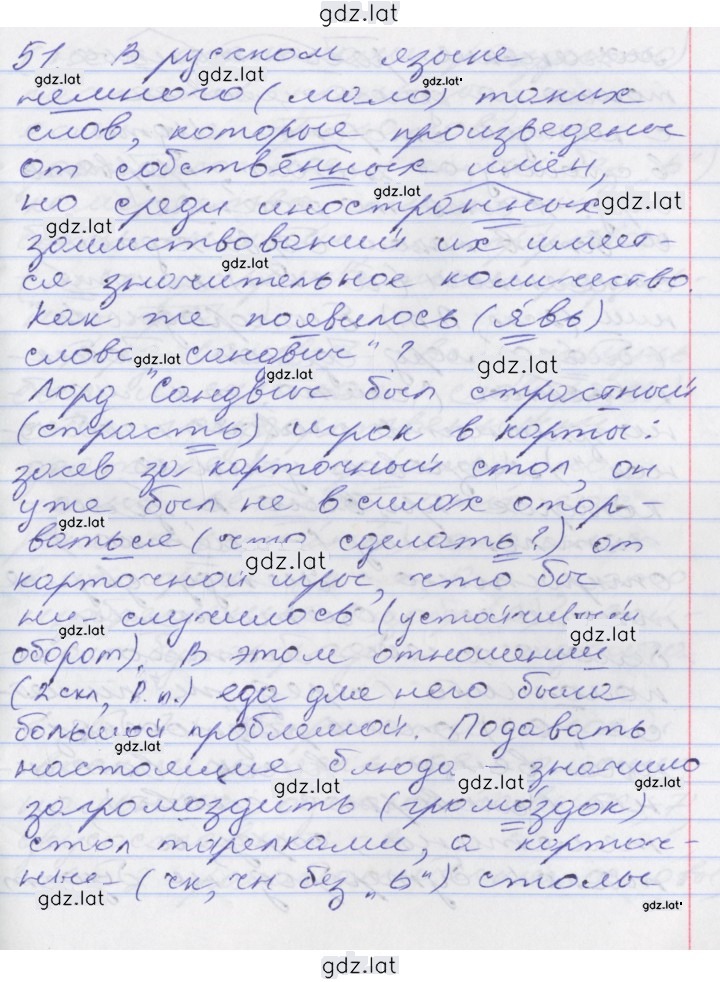 gdz.lat
51. В русском языке
gdz.lat gdz.lat gdz.lat
немного (мало) таких
слов, которые произведены
от собственных имён,
gdz.lat gdz.lat
но среди иностранных
gdz.lat
заимствований их имеет-
gdz.lat
ся значительное количество.
Как же появилось (я́вь)
слово „сандвич"?
gdz.lat gdz.lat gdz.lat
Лорд Сандвич был страстный
(страсть) игрок в карты:
засев за карточный стол, он
уже был не в силах отор-
gdz.lat
ваться (что сделать?) от
gdz.lat
карточной игры, что бы
ни случилось (устойчивый
gdz.lat gdz.lat
оборот). В этом отношении
(2 скл, П.п.) еда для него была
большой проблемой. Подавать
gdz.lat
настоящие блюда – значило
gdz.lat gdz.lat gdz.lat
загромоздить (громо́здок)
стол тарелками, а карточ-
ные (чк, чн без „ь") столы
gdz.lat gdz.lat
gdz.lat